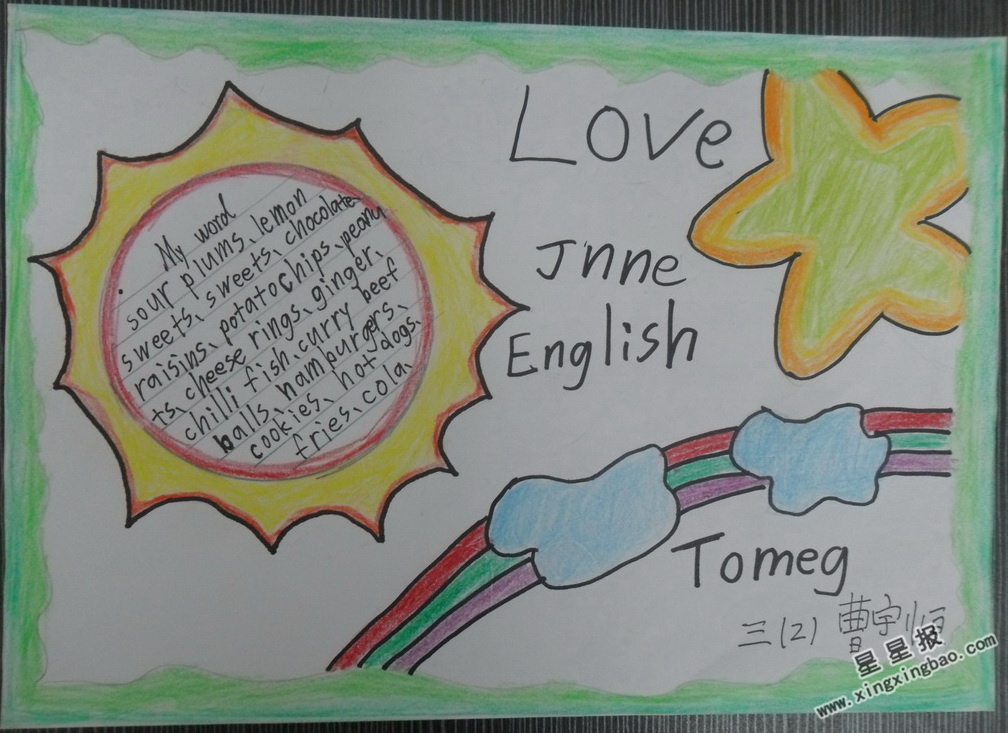 My word
sour plums、lemon
sweets、sweets、chocolate
raisins、potato chips、peanu
ts、cheese rings、ginger、
chilli fish、curry beef
balls、hamburgers、
cookies、hot dogs、
fries、cola、
Love
Jnne
English
Tomeg
三(2) 曹宇恒
星星报
www.xingxingbao.com